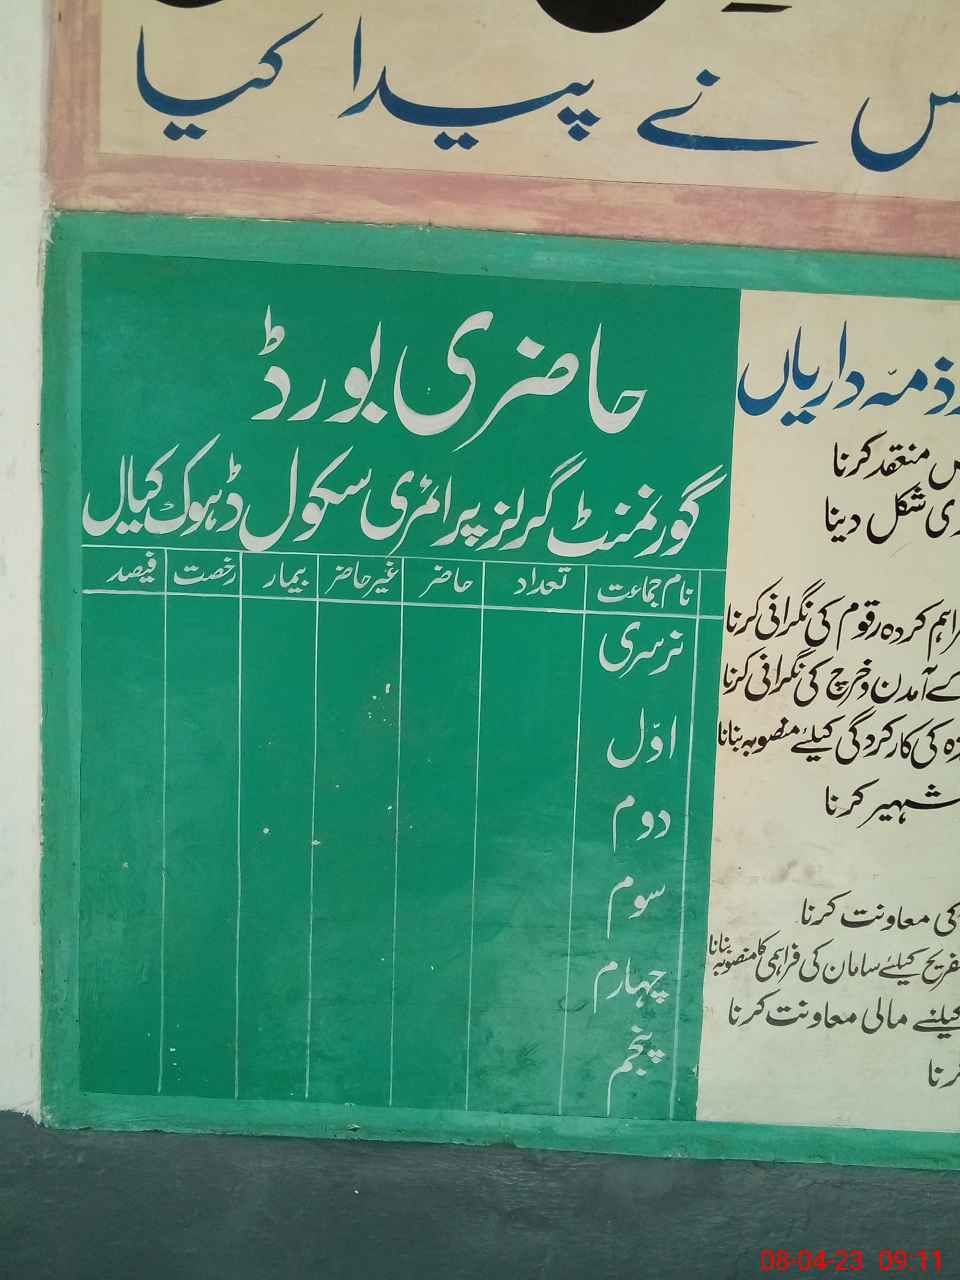 نے پیدا کیا
حاضری بورڈ
گورنمنٹ گرلز پرائمری سکول ڈہوک کیال
نام جماعت تعداد حاضر غیر حاضر بیمار رخصت فیصد
نرسری
اوّل
دوم
سوم
چہارم
پنجم
ذمّہ داریاں
منعقد کرنا
شکل دینا
کردہ رقوم کی نگرانی کرنا
آمدن و خرچ کی نگرانی کرنا
کی کارکردگی کیلئے منصوبہ بنانا
کرنا
کی معاونت کرنا
کیلئے سامان کی فراہمی کا منصوبہ بنانا
کیلئے مالی معاونت کرنا
08-04-23 09:11